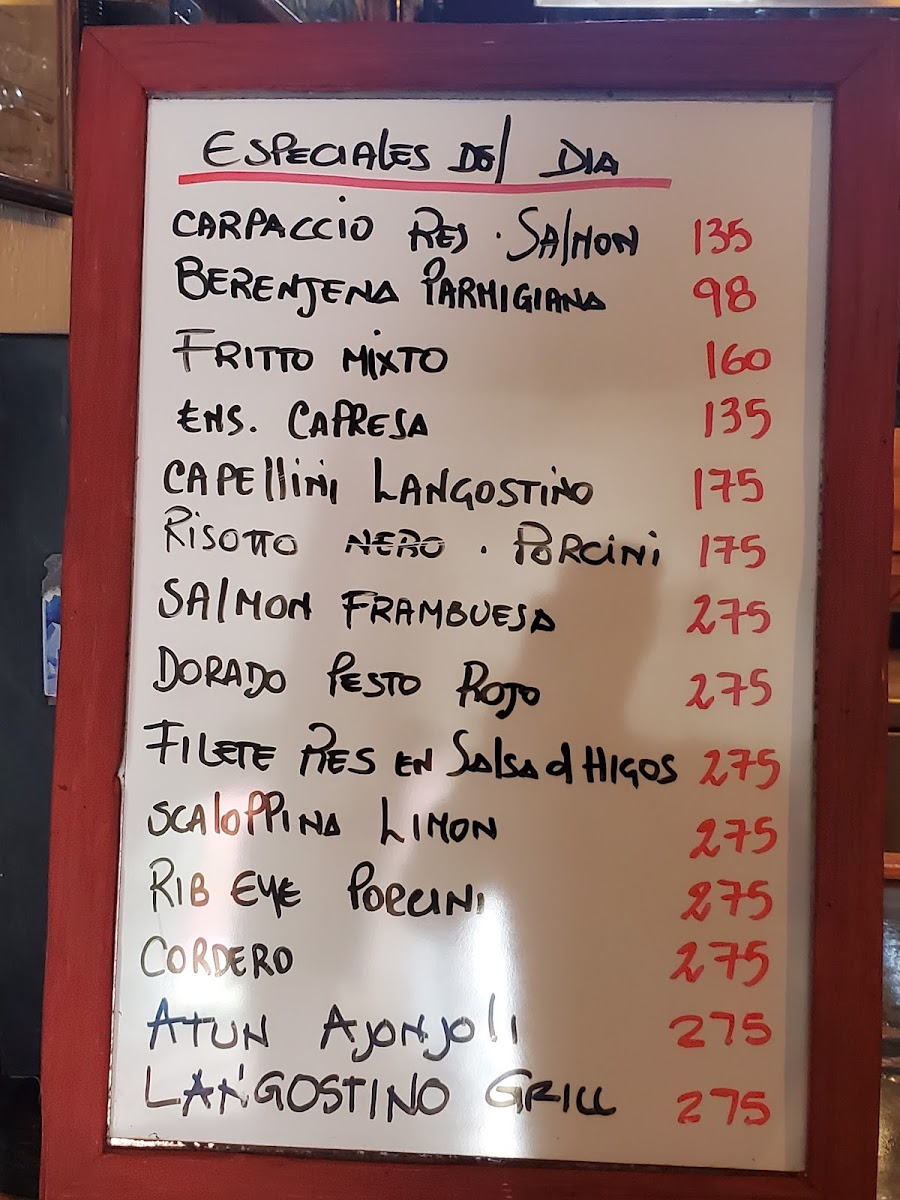 ESPECIALES DEl DIA
CARPACCIO RES · SAlMON 135
BERENJENA PARMIGIANA 98
FRITTO MIXTO 160
ENS. CAPRESA 135
CAPEllini LANGOSTINO 175
RISOTTO NERO · PORCINI 175
SAlMON FRAMBUESA 275
DORADO PESTO ROJO 275
FILETE RES EN SAlSA d HIGOS 275
SCAlOPPINA LIMON 275
RIB EYE PORCINI 275
CORDERO 275
ATUN AJONJOlI 275
LANGOSTINO GRILL 275